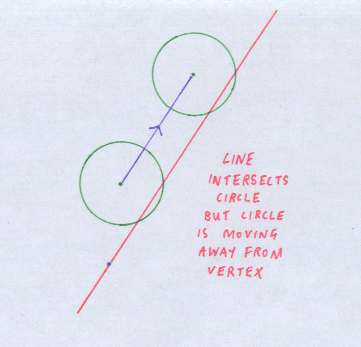 LINE
INTERSECTS
CIRCLE
BUT CIRCLE
IS MOVING
AWAY FROM
VERTEX